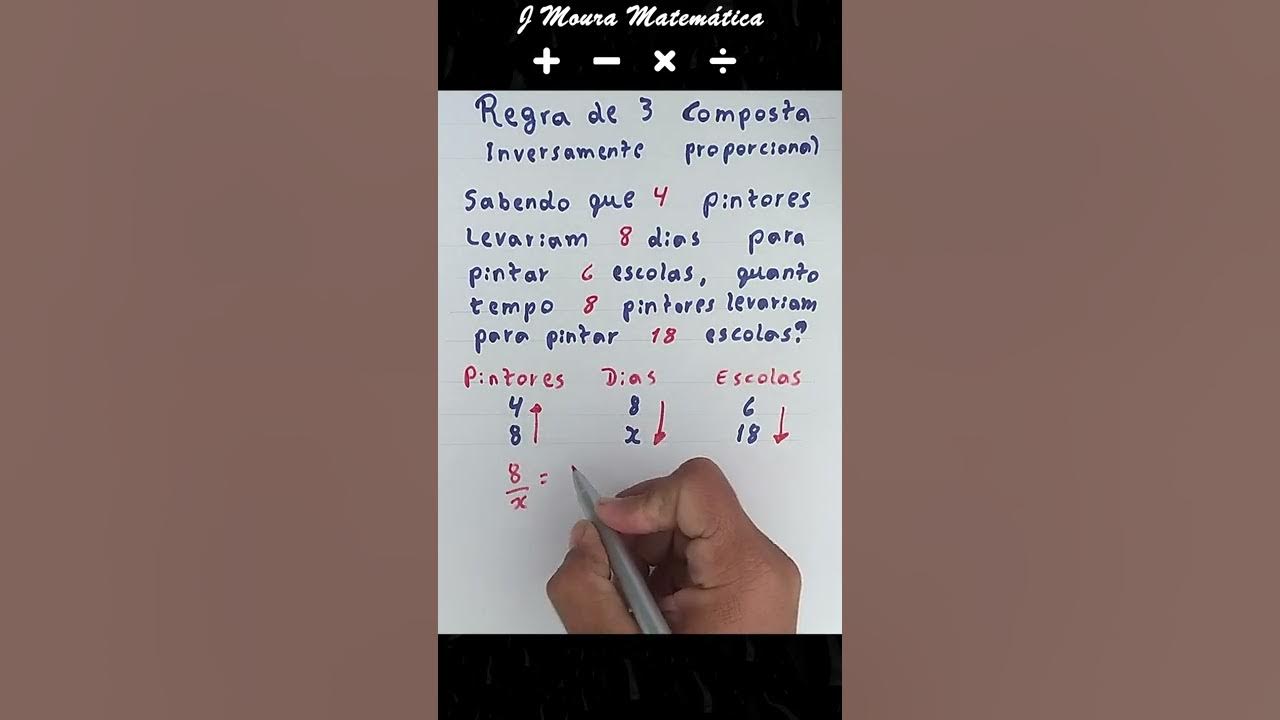 J Moura Matemática
+ − × ÷
Regra de 3 Composta
Inversamente proporcional
Sabendo que 4 pintores
Levariam 8 dias para
pintar 6 escolas, quanto
tempo 8 pintores levariam
para pintar 18 escolas?
Pintores Dias Escolas
4 8 6
8 x 18
8
x =